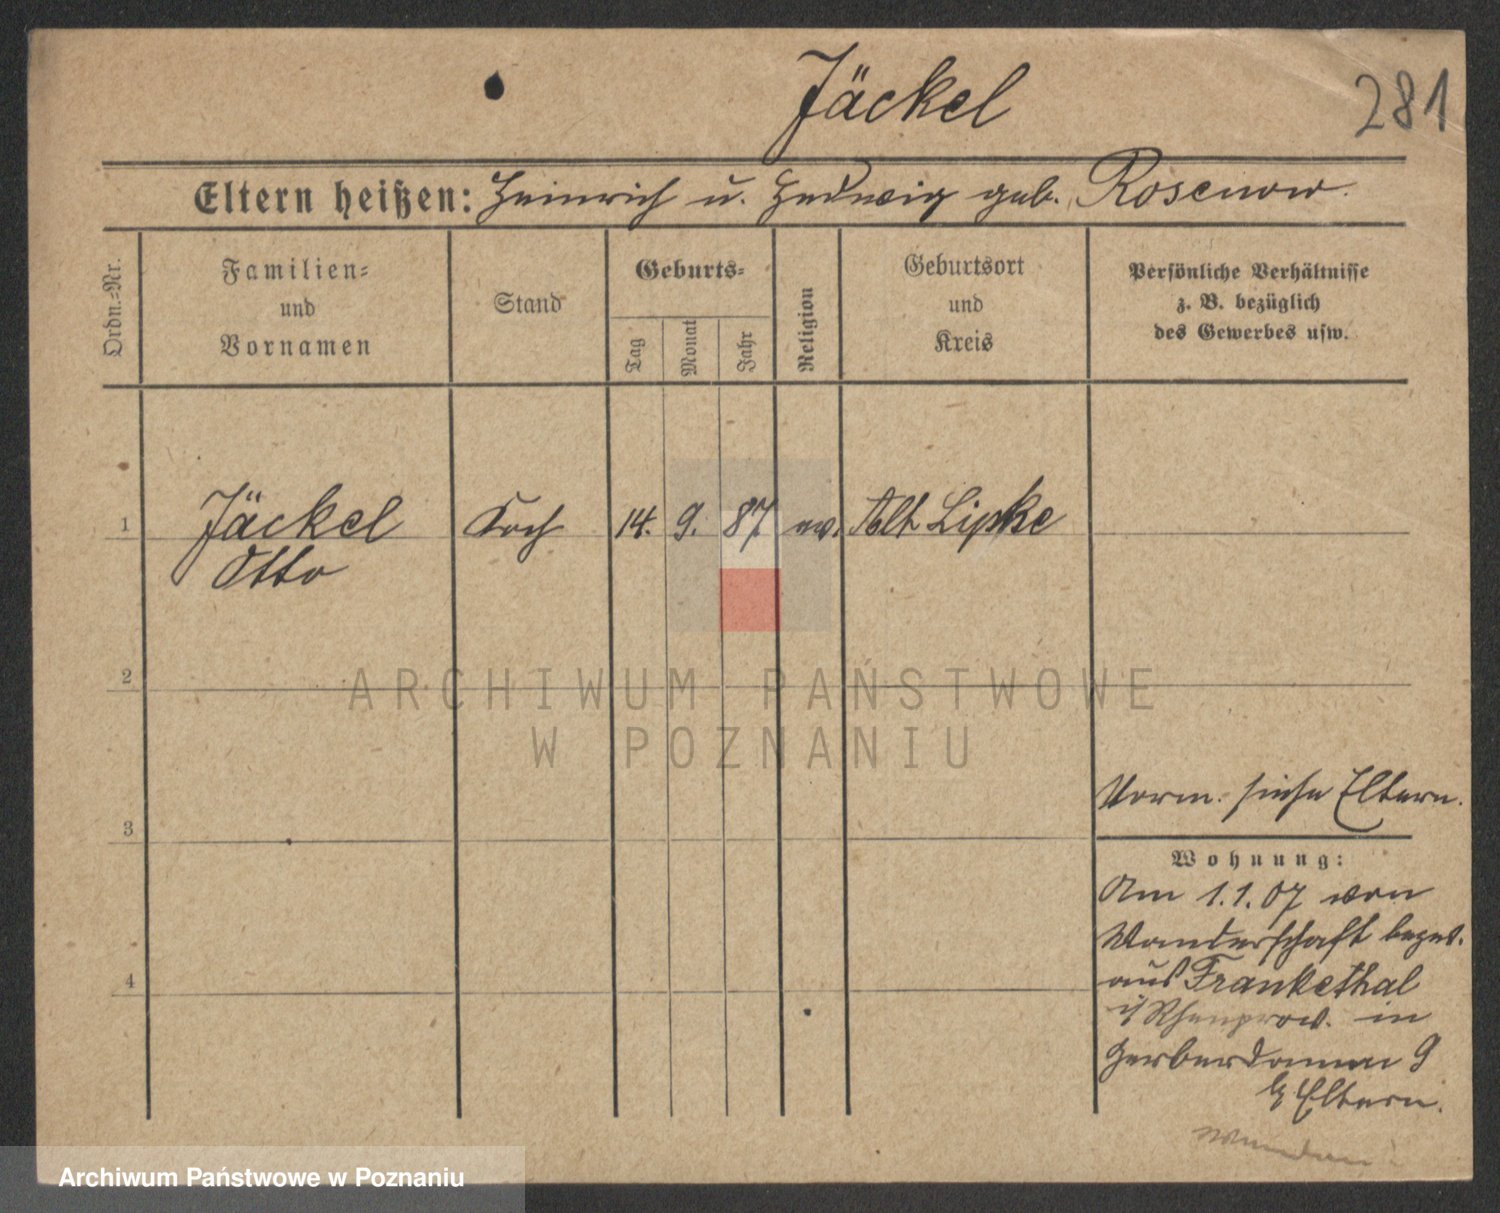 Jäckel
281
Eltern heißen: Heinrich u. Hedwig geb. Rosenow.
Ordn.=Nr.
Familien=
und
Vornamen
Stand
Geburts=
Tag
Monat
Jahr
Religion
Geburtsort
und
Kreis
Persönliche Verhältnisse
z. B. bezüglich
des Gewerbes usw.
1
Jäckel
Otto
Koch
14.
9.
87
ev.
Alt Lipke
2
ARCHIWUM PAŃSTWOWE
W POZNANIU
Vorm. siehe Eltern.
3
Wohnung:
Am 1.1.07 von
Wanderschaft bezw.
aus Frankethal
Rheinprov. in
4
Gerberdamm 9
Eltern.
Archiwum Państwowe w Poznaniu